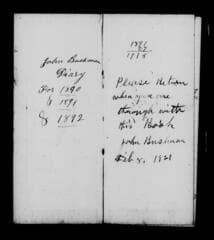 John Bushman
Diary
For 1890
& 1891
& 1892
1885
Please Return
when you are
through with
this Book
John Bushman
Feb 8, 1921